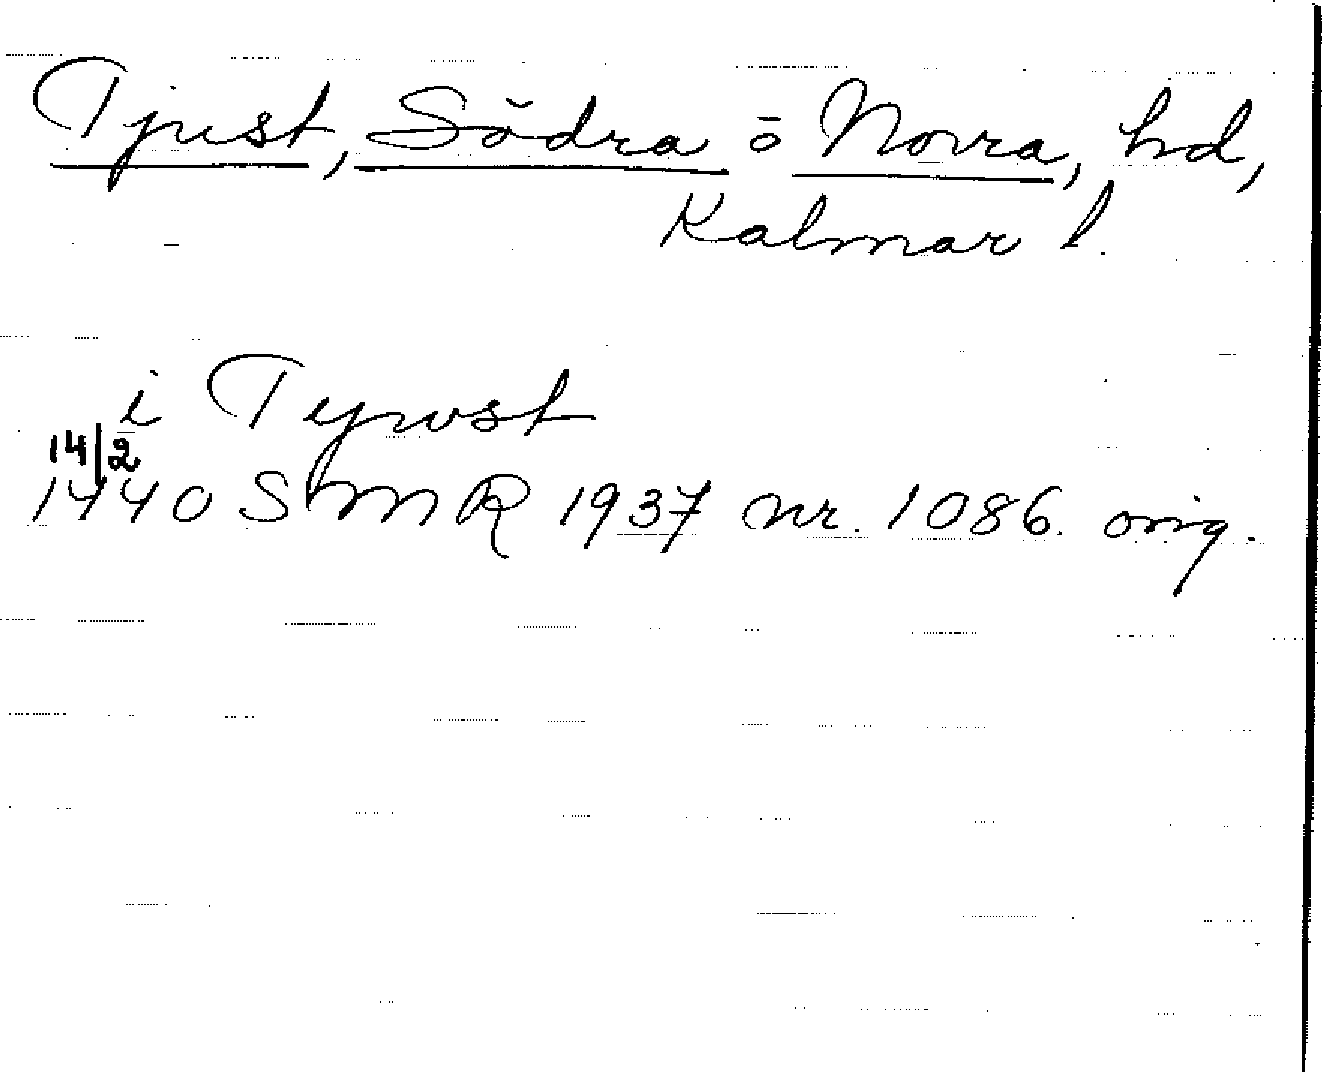 Tjust, Södra o Norra, hd,
Kalmar l.
i Tywst
14/2
1440 SMR 1937 nr. 1086. orig.